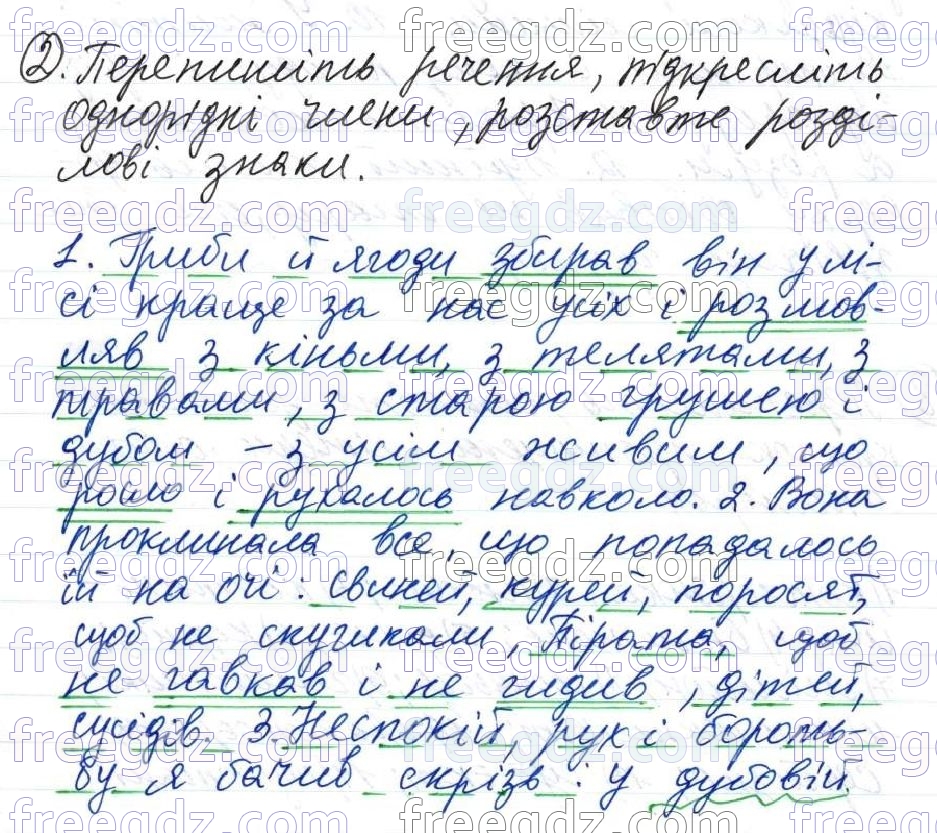 2. Перепишіть речення, підкресліть
однорідні члени, розставте розді-
лові знаки.
1. Гриби й ягоди збирав він у лі-
сі краще за нас усіх і розмов-
ляв з кіньми, з телятами, з
травами, з старою грушею і
дубом – з усім живим, що
росло і рухалось навколо. 2. Вона
проклинала все, що попадалось
їй на очі: свиней, курей, поросят,
щоб не скугикали, Пірата, щоб
не гавкав і не гидив, дітей,
сусідів. 3. Неспокій, рух і бороть-
бу я бачив скрізь: у дубовій